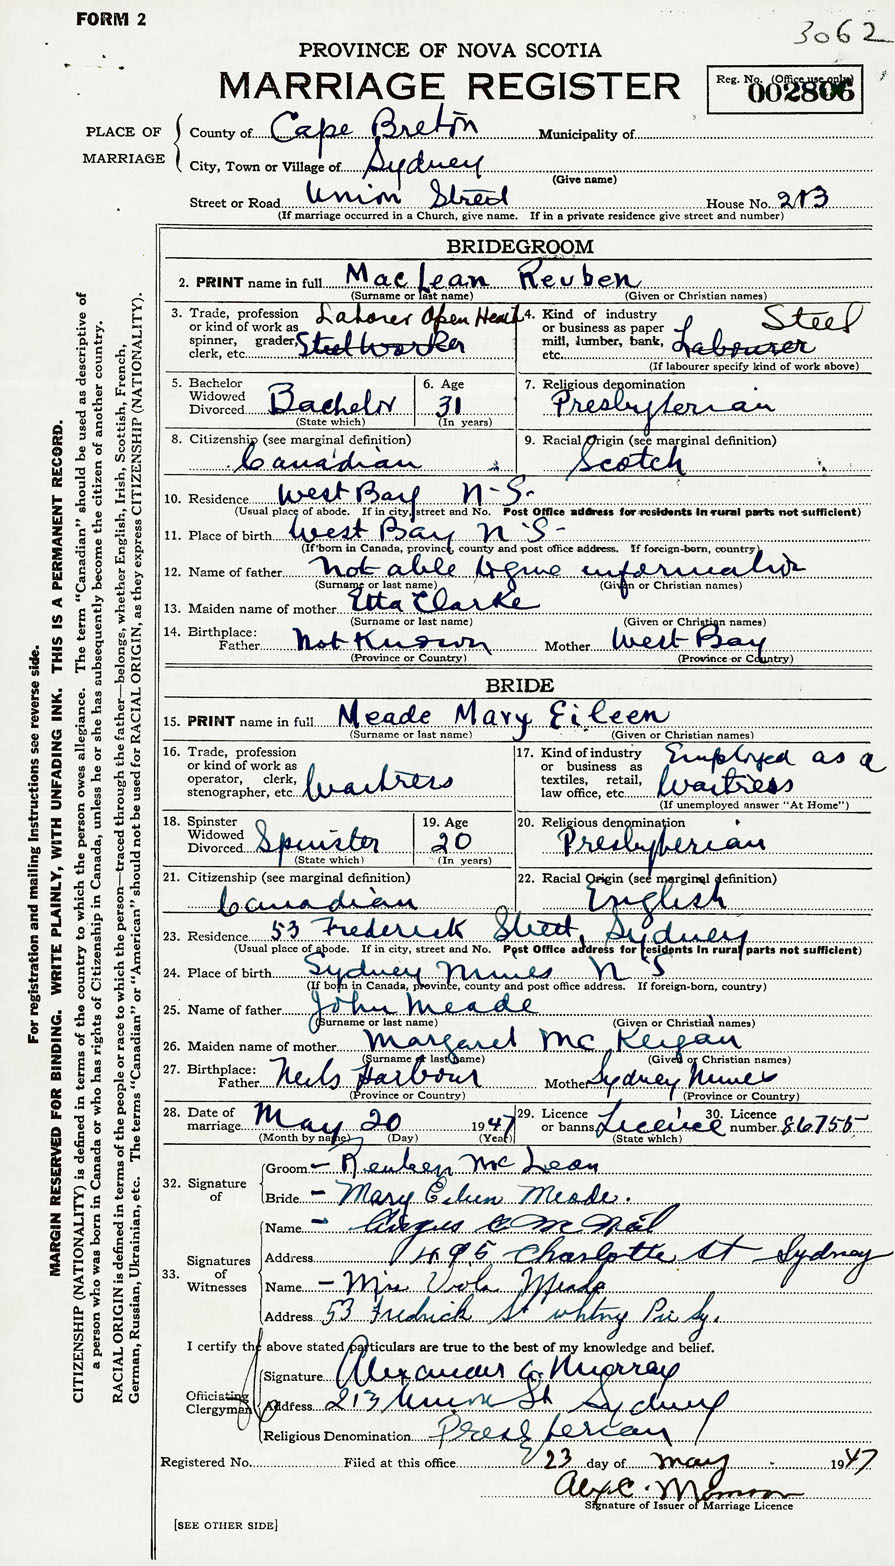 FORM 2
3062
PROVINCE OF NOVA SCOTIA
MARRIAGE REGISTER
Reg. No. (Office use only)
002806
PLACE OF MARRIAGE
County of Cape Breton Municipality of
City, Town or Village of Sydney
(Give name)
Street or Road Union Street House No. 213
(If marriage occurred in a Church, give name. If in a private residence give street and number)
BRIDEGROOM
2. PRINT name in full MacLean Reuben
(Surname or last name) (Given or Christian names)
3. Trade, profession or kind of work as spinner, grader, clerk, etc. Laborer Open Hearth Steel Worker
4. Kind of industry or business as paper mill, lumber, bank, etc. Steel Labourer
(If labourer specify kind of work above)
5. Bachelor Widowed Divorced Bachelor
(State which)
6. Age 31
(In years)
7. Religious denomination
Presbyterian
8. Citizenship (see marginal definition)
Canadian
9. Racial Origin (see marginal definition)
Scotch
10. Residence West Bay N-S-
(Usual place of abode. If in city, street and No. Post Office address for residents in rural parts not sufficient)
11. Place of birth West Bay N S-
(If born in Canada, province, county and post office address. If foreign-born, country)
12. Name of father not able to give information
(Surname or last name) (Given or Christian names)
13. Maiden name of mother Etta Clarke
(Surname or last name) (Given or Christian names)
14. Birthplace: Father Not Known Mother West Bay
(Province or Country) (Province or Country)
BRIDE
15. PRINT name in full Meade Mary Eileen
(Surname or last name) (Given or Christian names)
16. Trade, profession or kind of work as operator, clerk, stenographer, etc. Waitress
17. Kind of industry or business as textiles, retail, law office, etc. Employed as a Waitress
(If unemployed answer "At Home")
18. Spinster Widowed Divorced Spinster
(State which)
19. Age 20
(In years)
20. Religious denomination
Presbyterian
21. Citizenship (see marginal definition)
Canadian
22. Racial Origin (see marginal definition)
English
23. Residence 53 Frederick Street, Sydney
(Usual place of abode. If in city, street and No. Post Office address for residents in rural parts not sufficient)
24. Place of birth Sydney Mines N S
(If born in Canada, province, county and post office address. If foreign-born, country)
25. Name of father John Meade
(Surname or last name) (Given or Christian names)
26. Maiden name of mother Margaret McKeigan
(Surname or last name) (Given or Christian names)
27. Birthplace: Father Neils Harbour Mother Sydney Mines
(Province or Country) (Province or Country)
28. Date of marriage May 20 1947
(Month by name) (Day) (Year)
29. Licence or banns Licence
(State which)
30. Licence number 86755
32. Signature of
Groom - Reuben McLean
Bride - Mary Eileen Meade.
33. Signatures of Witnesses
Name - Angus C McNeil
Address 495 Charlotte St Sydney
Name - Mrs Viola Meade
Address 53 Fredrick St whitney Pier Sy.
I certify the above stated particulars are true to the best of my knowledge and belief.
Officiating Clergyman
Signature Alexander G. Murray
Address 213 Union St Sydney
Religious Denomination Presbyterian
Registered No. Filed at this office 23 day of May 1947
Alex C.
Signature of Issuer of Marriage Licence
[SEE OTHER SIDE]
For registration and mailing instructions see reverse side.
MARGIN RESERVED FOR BINDING. WRITE PLAINLY, WITH UNFADING INK. THIS IS A PERMANENT RECORD.
CITIZENSHIP (NATIONALITY) is defined in terms of the country to which the person owes allegiance. The term "Canadian" should be used as descriptive of
a person who was born in Canada or who has rights of Citizenship in Canada, unless he or she has subsequently become the citizen of another country.
RACIAL ORIGIN is defined in terms of the people or race to which the person—traced through the father—belongs, whether English, Irish, Scottish, French,
German, Russian, Ukrainian, etc. The terms "Canadian" or "American" should not be used for RACIAL ORIGIN, as they express CITIZENSHIP (NATIONALITY).